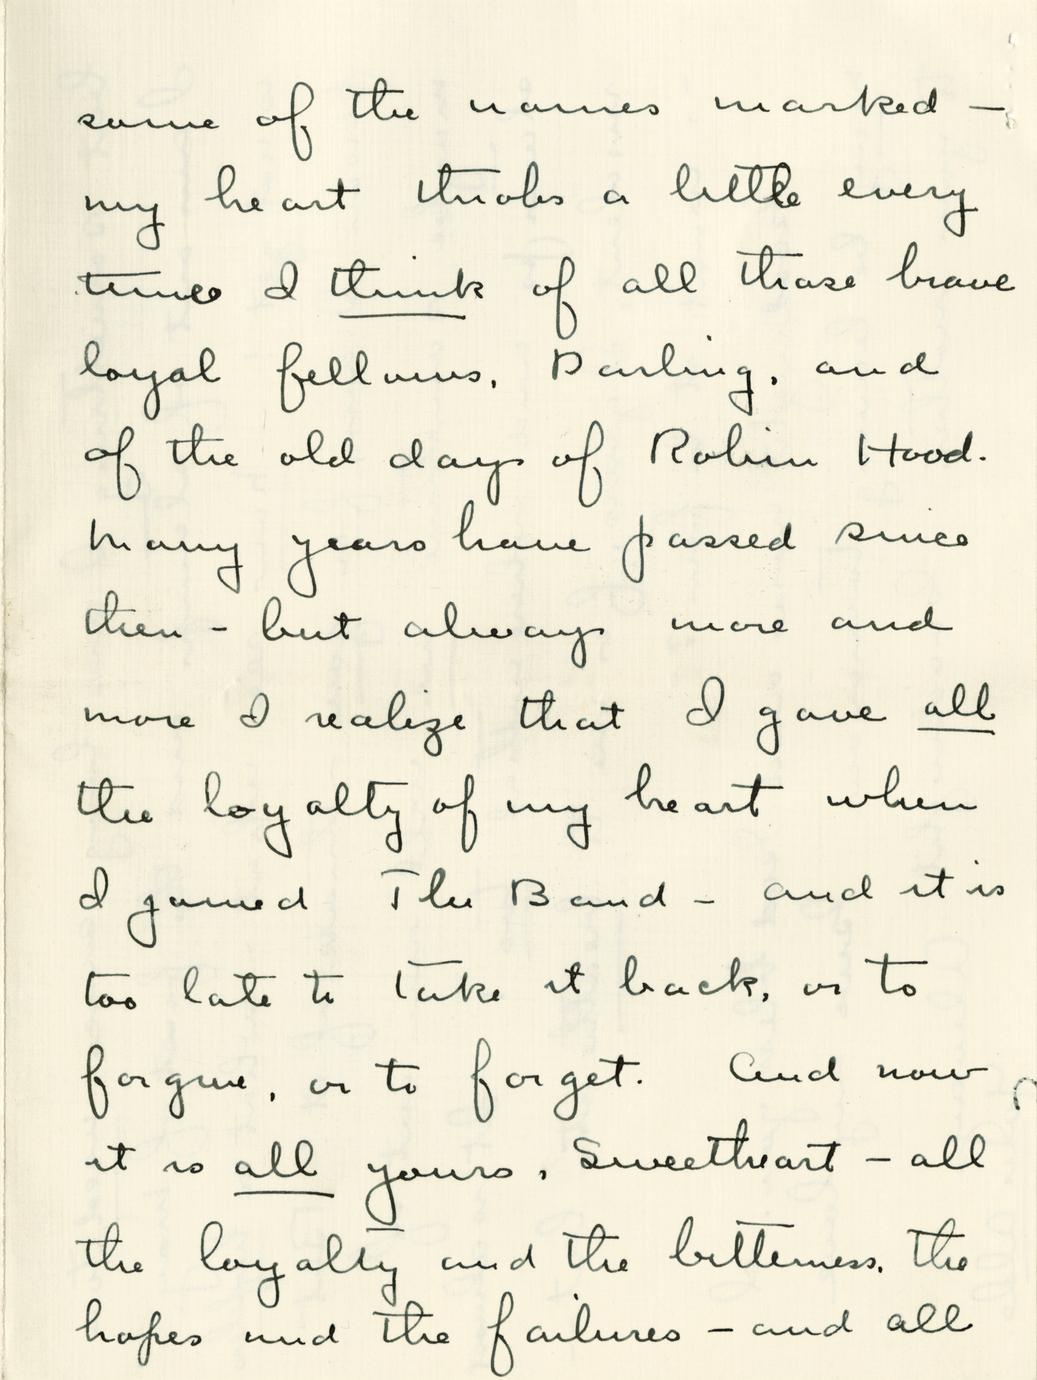 some of the names marked —
my heart throbs a little every
time I think of all those brave
loyal fellows, Darling, and
of the old days of Robin Hood.
Many years have passed since
then - but always more and
more I realize that I gave all
the loyalty of my heart when
I joined The Band - and it is
too late to take it back, or to
forgive, or to forget. And now
it is all yours, Sweetheart - all
the loyalty and the bitterness, the
hopes and the failures - and all